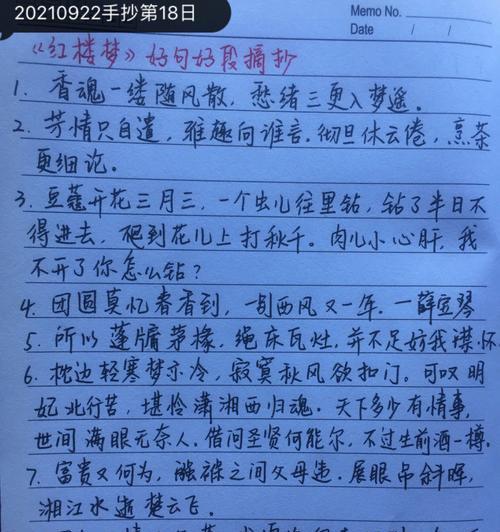 20210922手抄第18日
Memo No.
Date / /
《红楼梦》好句好段摘抄
1、香魂一缕随风散，愁绪三更入梦遥。
2、芳情只自遣，雅趣向谁言。彻旦休云倦，烹茶
更细论。
3、豆蔻开花三月三，一个虫儿往里钻，钻了半日不
得进去，爬到花儿上打秋千。肉儿小心肝，我
不开了你怎么钻？
4、团圆莫忆春香到，一别西风又一年。—薛宝琴
5、所以蓬牖茅椽，绳床瓦灶，并不足妨我襟怀
6、枕边轻寒梦亦冷，寂寞秋风欲扣门。可叹明
妃北行苦，堪怜潇湘西归魂。天下多少有情事，
世间满眼无奈人。借问圣贤何能尔，不过生前酒一樽。
7、富贵又何为，襁褓之间父母违。展眼吊斜晖，
湘江水逝楚云飞。